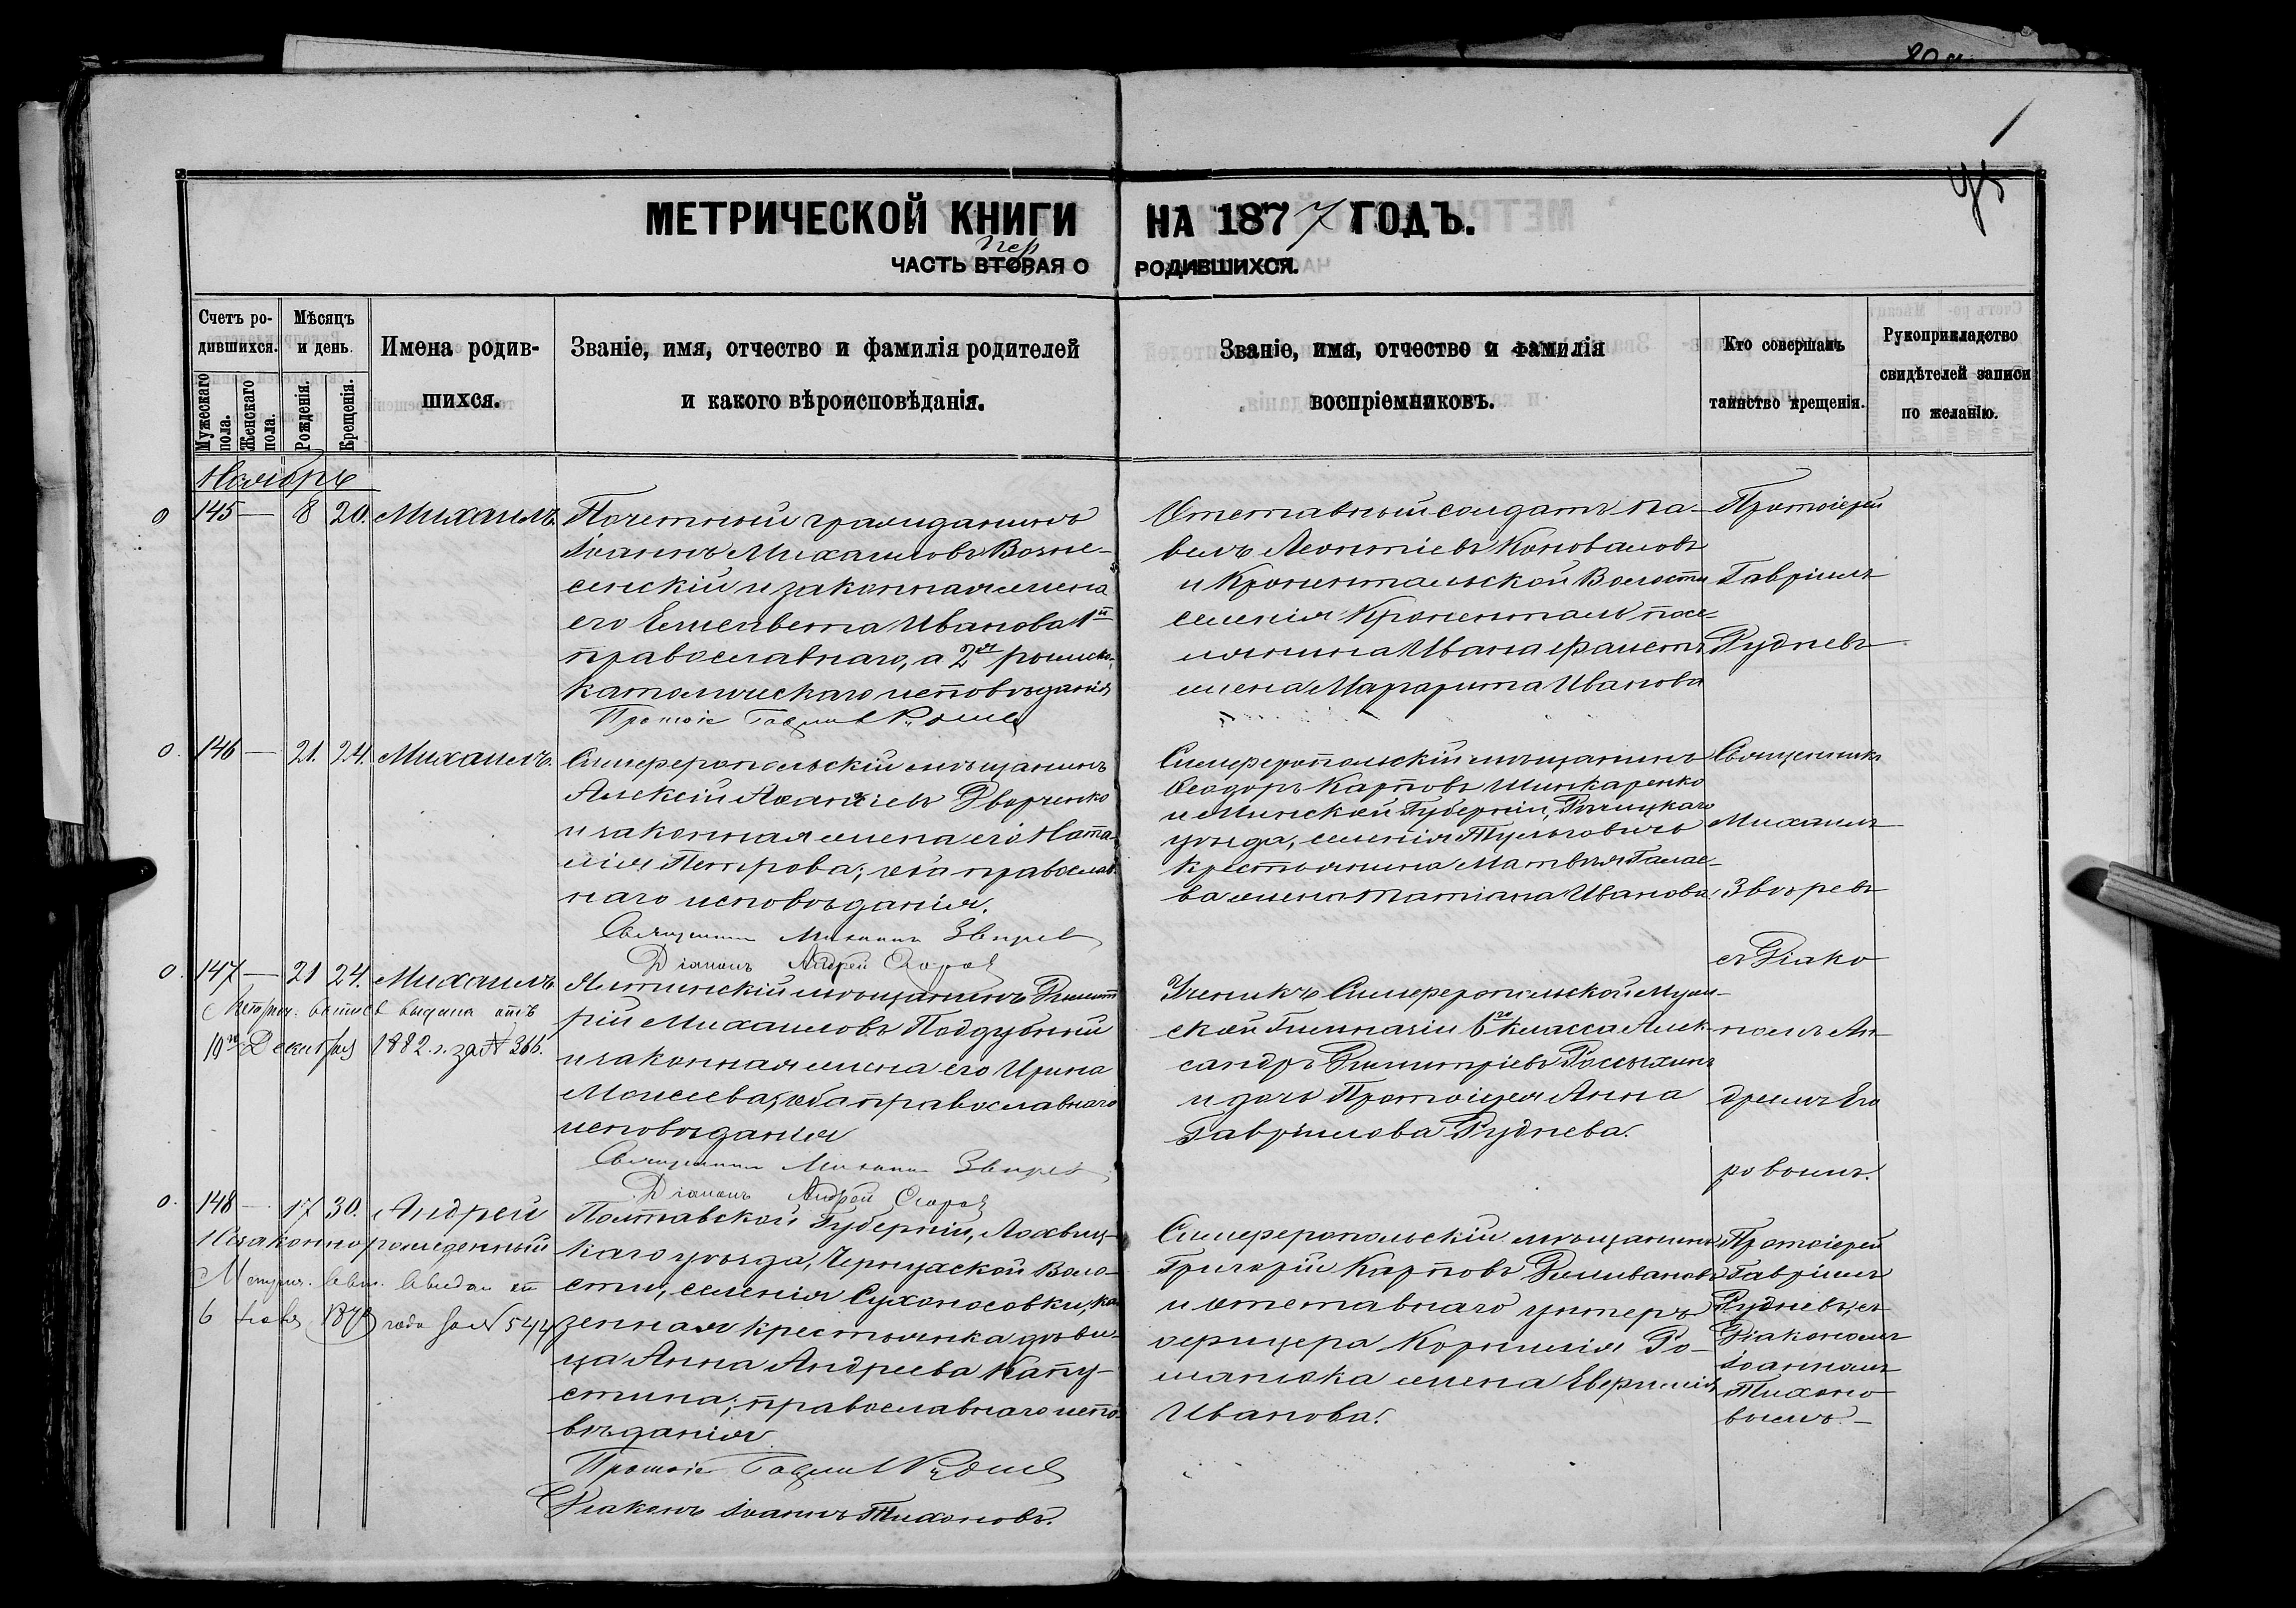 МЕТРИЧЕСКОЙ КНИГИ НА 1877 ГОДЪ.
пер
ЧАСТЬ ВТОРАЯ О РОДИВШИХСЯ.
Счетъ родившихся.
Мужескаго пола.
Женскаго пола.
Мѣсяцъ и день.
Рожденія.
Крещенія.
Имена родив-
шихся.
Званіе, имя, отчество и фамилія родителей
и какого вѣроисповѣданія.
Званіе, имя, отчество и фамилія
воспріемниковъ.
Кто совершалъ
таинство крещенія.
Рукоприкладство
свидѣтелей записи
по желанію.
Ноябрь
145 — 8 20. Михаилъ.
Почетный гражданинъ
Іоаннъ Михаиловъ Возне-
сенскій и законная жена
его Елисавета Иванова 1й
православнаго, а 2я римско-
католическаго исповѣданія
Отставный солдатъ Па-
велъ Леонтіевъ Коноваловъ
и Кронентальской Волости
селенія Кроненталь посе-
лянина Ивана
жена Маргарита Иванова
Протоіерей
Гавріилъ
Рудневъ
146 — 21. 24. Михаилъ.
Симферопольскій мѣщанинъ
Алексій Дворченко
и законная жена его Ната-
лія Петрова; оба православ-
наго исповѣданія.
Священникъ Михаилъ Звѣревъ
Діаконъ Андрей Егоровъ
Симферопольскій мѣщанинъ
Ѳеодоръ Карповъ Шинкаренко
и Минской Губерніи, Рѣчицкаго
уѣзда, селенія Тульговичъ
крестьянина Матвѣя Гамае-
ва жена Татіана Иванова.
Священникъ
Михаилъ
Звѣревъ
съ Діако-
номъ Ан-
дреемъ Его-
ровымъ.
147 — 21 24. Михаилъ
Метрич. выпись выдана отъ
19го Декабря 1882 г. за № 366.
Ялтинскій мѣщанинъ Димит-
рій Михаиловъ Поддубный
и законная жена его Ирина
Моисеева; оба православнаго
исповѣданія
Священникъ Михаилъ Звѣревъ
Діаконъ Андрей Егоровъ
Ученикъ Симферопольской Муж-
ской Гимназіи 6го класса Алек-
сандръ Димитріевъ
и дочь Протоіерея Анна
Гавріилова Руднева.
148 — 17 30. Андрей
Незаконнорожденный
6 1878 года за № 544
Полтавской Губерніи, Лохвиц-
каго уѣзда, Чернухской Воло-
сти, селенія Сухоносовки, ка-
зенная крестьянка дѣви-
ца Анна Андреева Капу-
стина; православнаго испо-
вѣданія
Діаконъ Іоаннъ Тихоновъ.
Симферопольскій мѣщанинъ
Григорій Карповъ
и отставнаго унтеръ-
офицера Корнилія Ро-
манюка жена Евфимія
Иванова.
Протоіерей
Гавріилъ
Рудневъ, съ
Діакономъ
Іоанномъ
Тихоно-
вымъ.